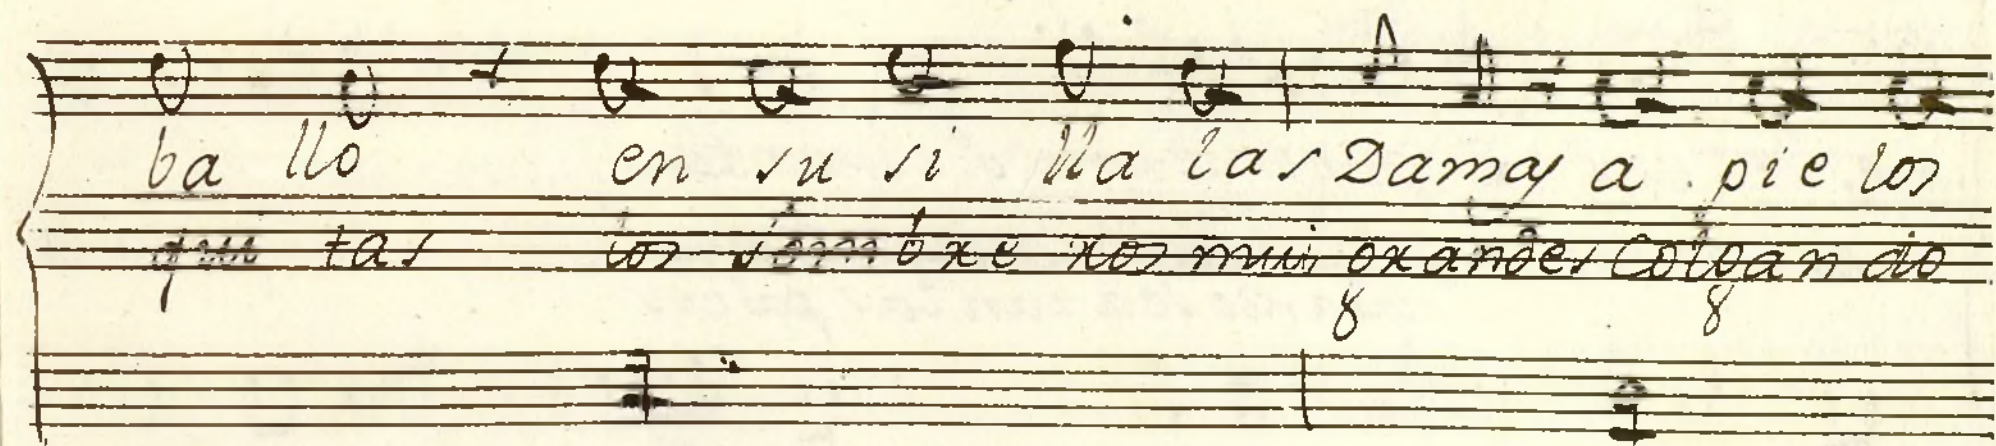 ba llo en su si lla las Damas a pie los
qui tas los sombre ros mui grandes Colgan do